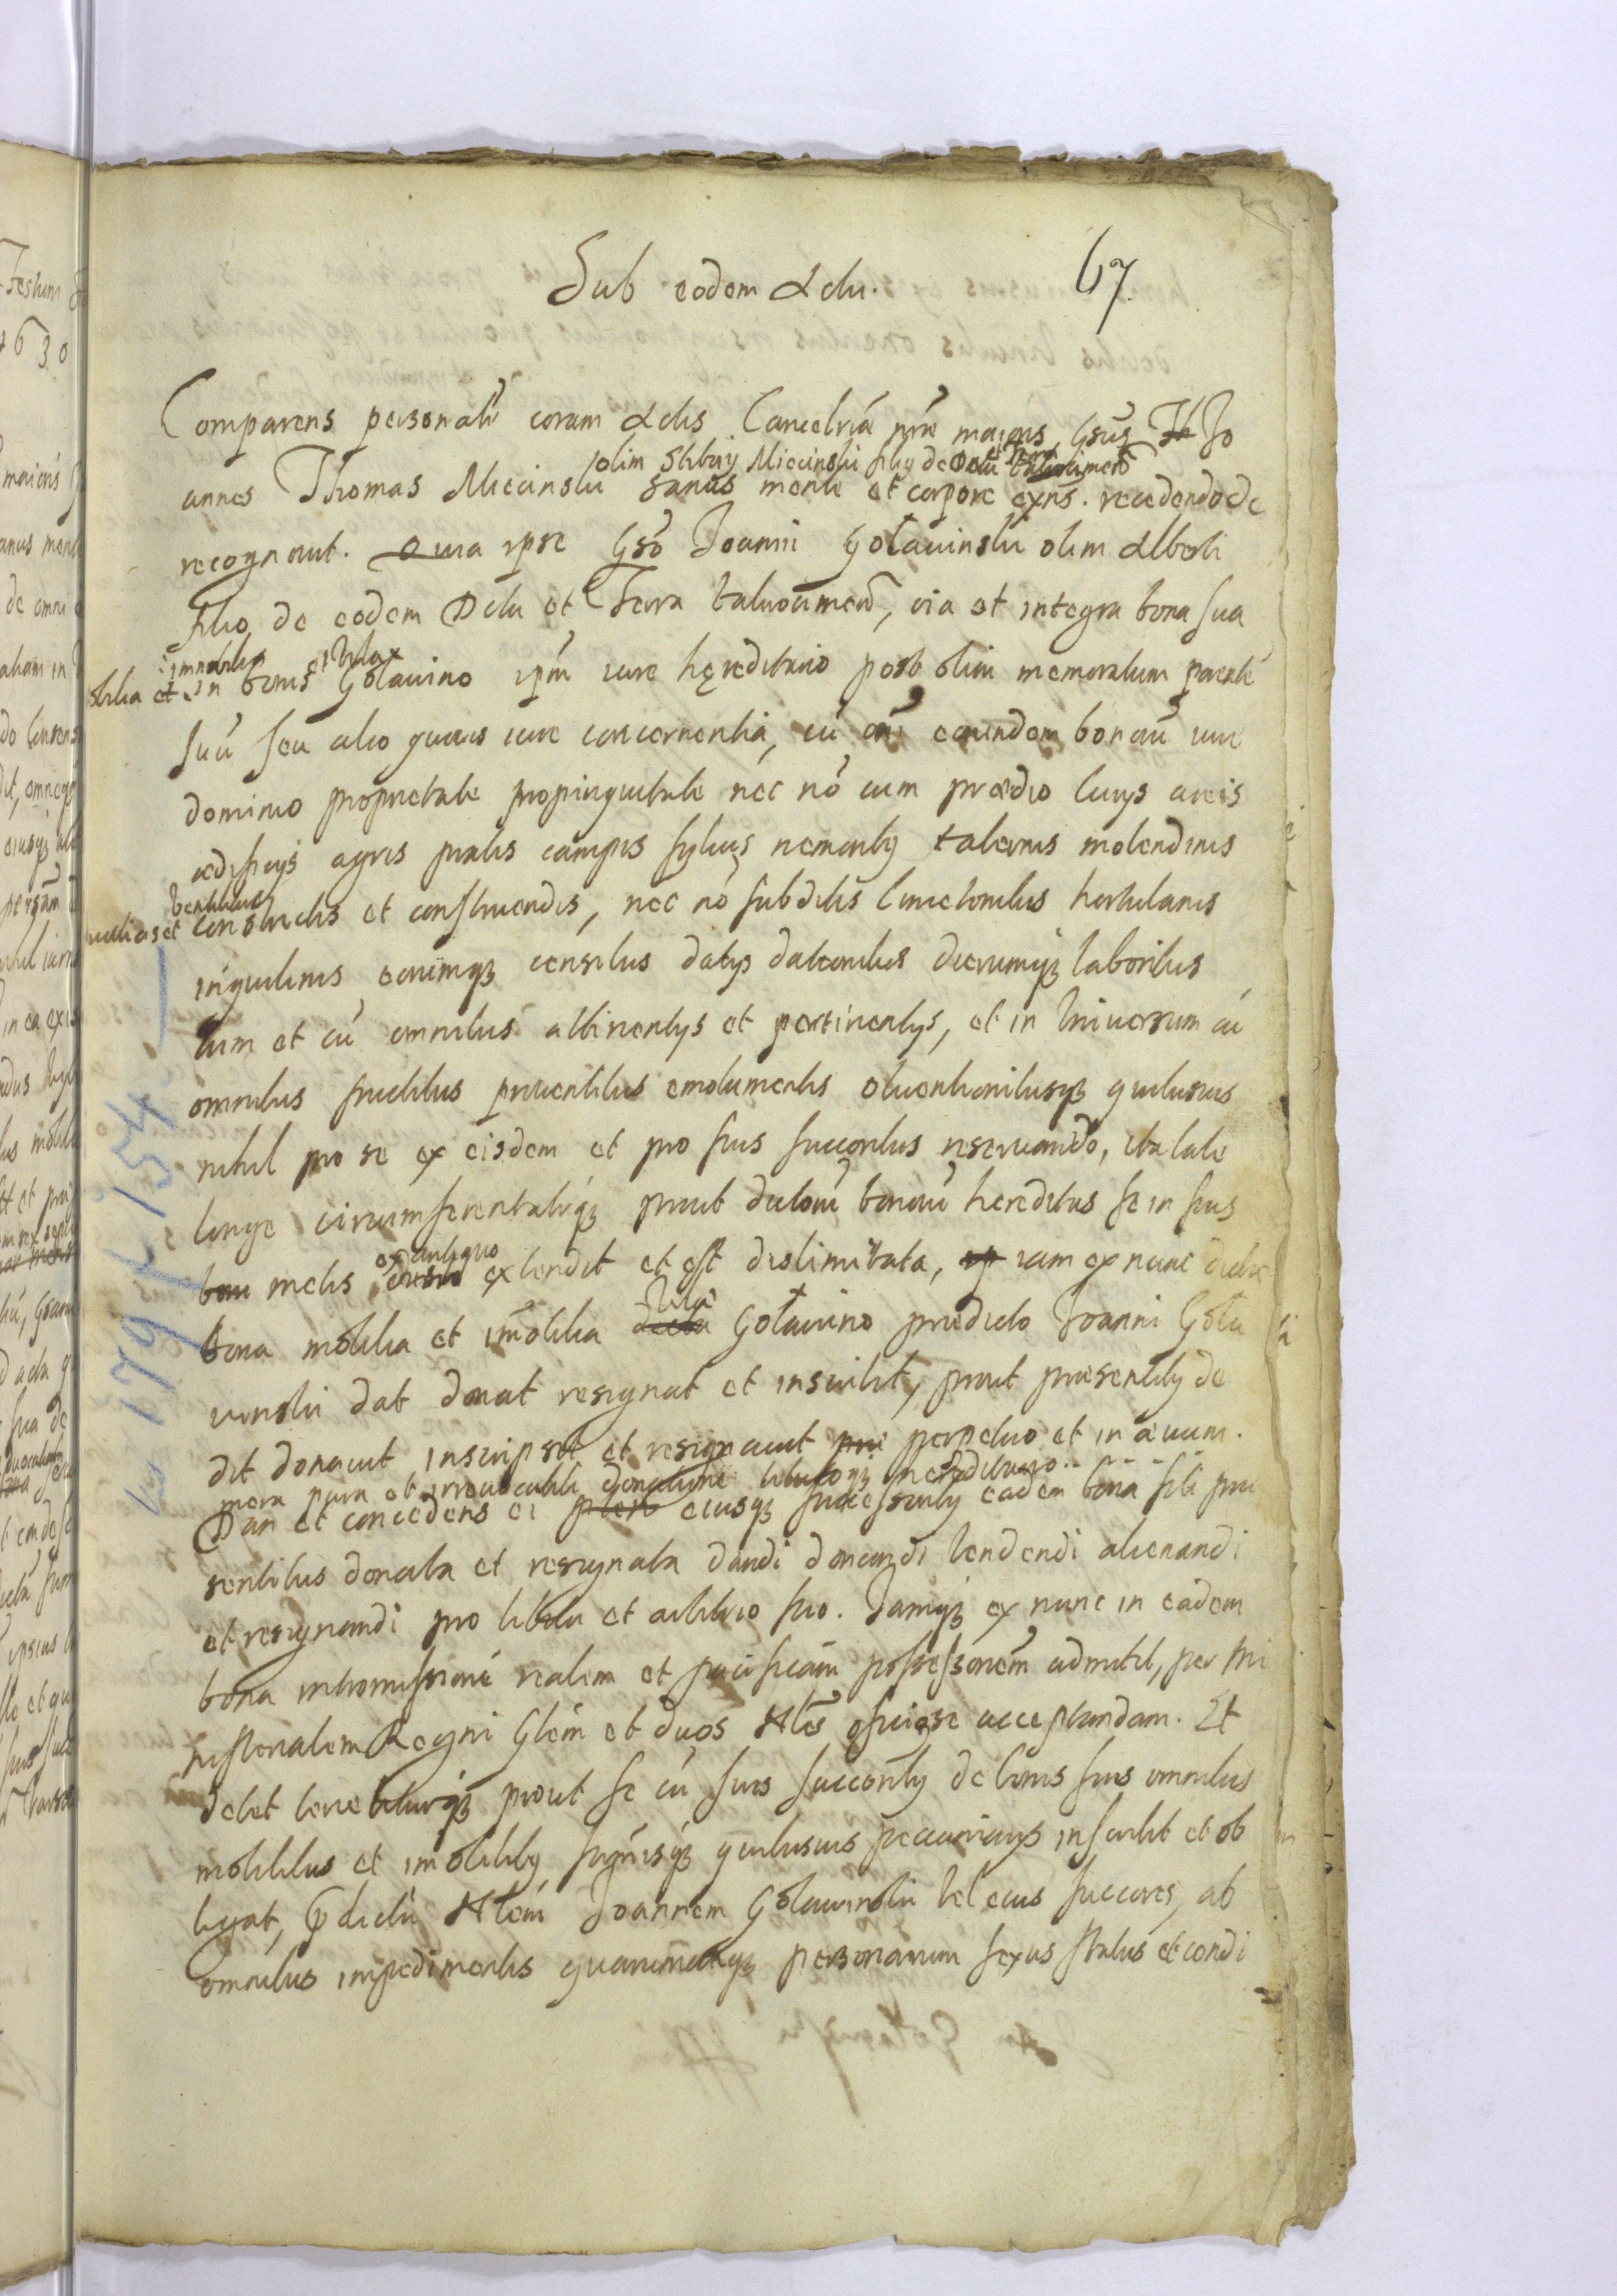 Sub eodem Actu.
67
Comparens personalr coram Actis Cancelria nra maioris, Gsus Th Jo
olim Miecinski de
annes Thomas Miecinski sanus mente et corpore exns. recedendo de
recognovit. Quia ipse Gso Joanni Gołavinski olim Alberti
filio de eodem Dctu et Terra, oia et integra bona sua
immobilia et villa
bilia et in bonis Gołavino ipm iure hęreditario post olim memoratum parente
suu seu alio quovis iure concernentia, cu oni eorundem bonoru iure
dominio proprietate propinquitate nec no cum prædio lucys areis
ædificys agris pratis campis sylvis nemorib tabernis molendinis
et constructis et construendis, nec no subditis cmetonibus hortulanis
inquilinis eorumq censibus datys dationibus dierumq laboribus
tum et cu omnibus attinentys et pertinentys, et in Universum cu
omnibus fructibus proventibus emolumentis obventionibusq quibusvis
nihil pro se ex eisdem et pro suis succoribus reservando, ita late
longe circumferentialrq prout dictoru bonoru hereditas se in suis
ex antiquo
metis extendit et est dislimitata, iam ex nunc dicta
Villa
bona mobilia et imobilia dicta Gołavino prædicto Joanni Gola
vinski dat donat resignat et inscribit, prout præsentib de
dit donavit inscripsit et resignavit perpetuo et in ævum.
mera pura et irrevocabili donatione tituloq hereditario
Dan et concedens ei eiusq successorib eadem bona sibi præ
sentibus donata et resignata dandi donandi vendendi alienandi
et resignandi pro libitu et arbitrio suo. Jamq ex nunc in eadem
bona intromissione realem et pacificam possessionem admittit, per Mi
nisterialem Regni Glem et duos Nles officiose acceptandam. Et
debet tenebiturq prout se cu suis succorib de bonis suis omnibus
mobilibus et imobilib sumisq quibusvis pecuniarys inscribit et ob
ligat, pdictu Nlem Joannem Gołavinski vel eius succores, ab
omnibus impedimentis quarumcunq personarum sexus status et condi